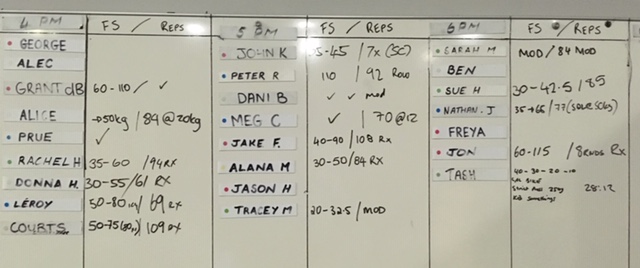 4 PM FS / REPS
GEORGE
ALEC
GRANT dB 60-110 / ✓
ALICE →50kg / 89 @ 20kg
PRUE ✓
RACHEL H 35-60 / 94 RX
DONNA H. 30-55 / 61 RX
LEROY 50-80 / 69 RX
COURTS 50-75 / 109 RX
5 PM FS / REPS
JOHN K 35-45 / 7x (50)
PETER R 110 / 92 Row
DANI B ✓ ✓ mod
MEG C ✓ / 70 @ 12
JAKE F. 40-90 / 108 RX
ALANA M 30-50 / 84 RX
JASON H
TRACEY M 20-32.5 / MOD
6 PM FS / REPS
SARAH M MOD / 84 MOD
BEN
SUE H 30-42.5 / 85
NATHAN. J 35→66 / 77
FREYA
JON 60-115 / 8 RNDS RX
TASH 40-30-20-10
25kg 28:12